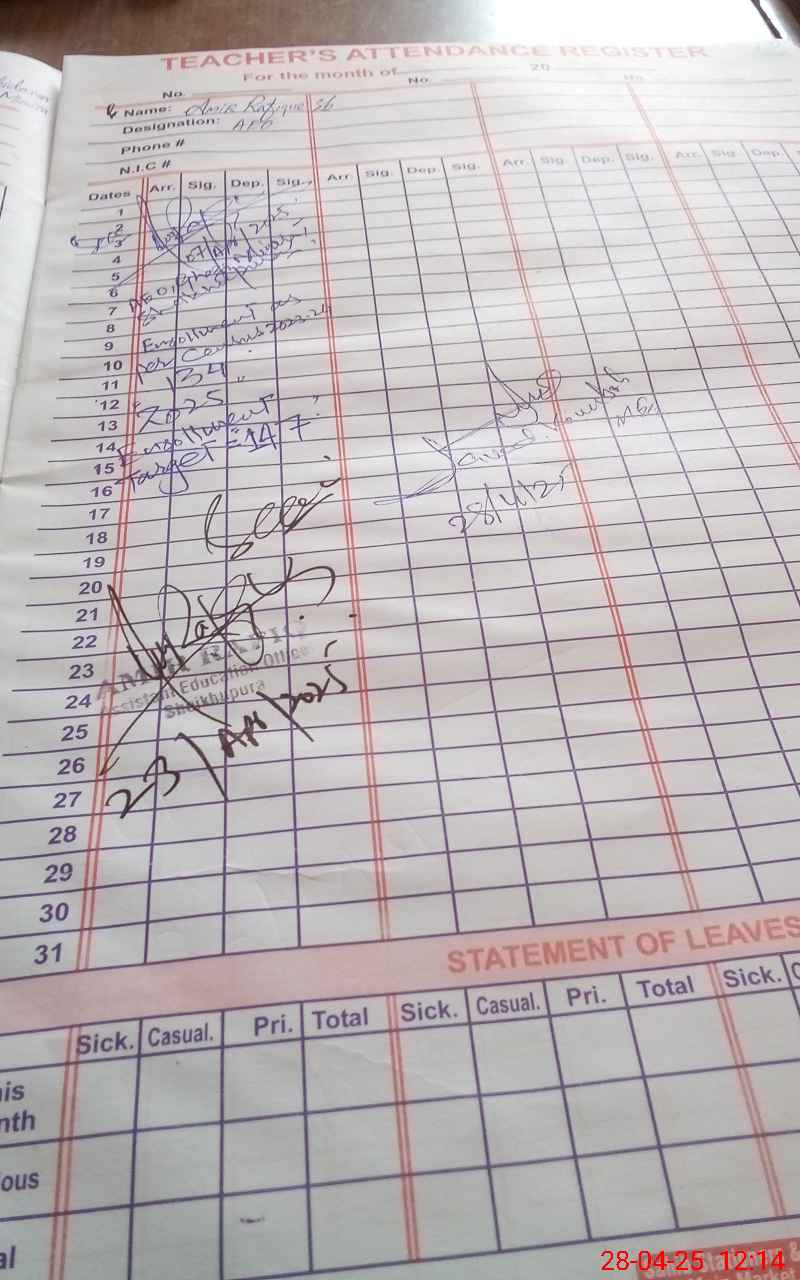 TEACHER'S ATTENDANCE REGISTER
For the month of 20
No. No. No.
Name: Amir Rafique Sb
Designation: AEO
Phone #
N.I.C #
Dates Arr. Sig. Dep. Sig. Arr. Sig. Dep. Sig. Arr. Sig. Dep. Sig. Arr. Sig. Dep.
1
2
3
4
07/Apr/2025
5
6
AEO,
7
8
Enrollment as
9
per Census 2023-24
10
134
11
12
2025
13
Enrollment
14
Target = 147
15
16
28/4/25
17
18
19
20
21
22
23
AMIR RAFIQ
Assistant Education Officer
24
Sheikhupura
25
23/Apr/2025
26
27
28
29
30
31
STATEMENT OF LEAVES
Sick. Casual. Pri. Total Sick. Casual. Pri. Total Sick. C
is
nth
ous
al
28-04-25 12:14